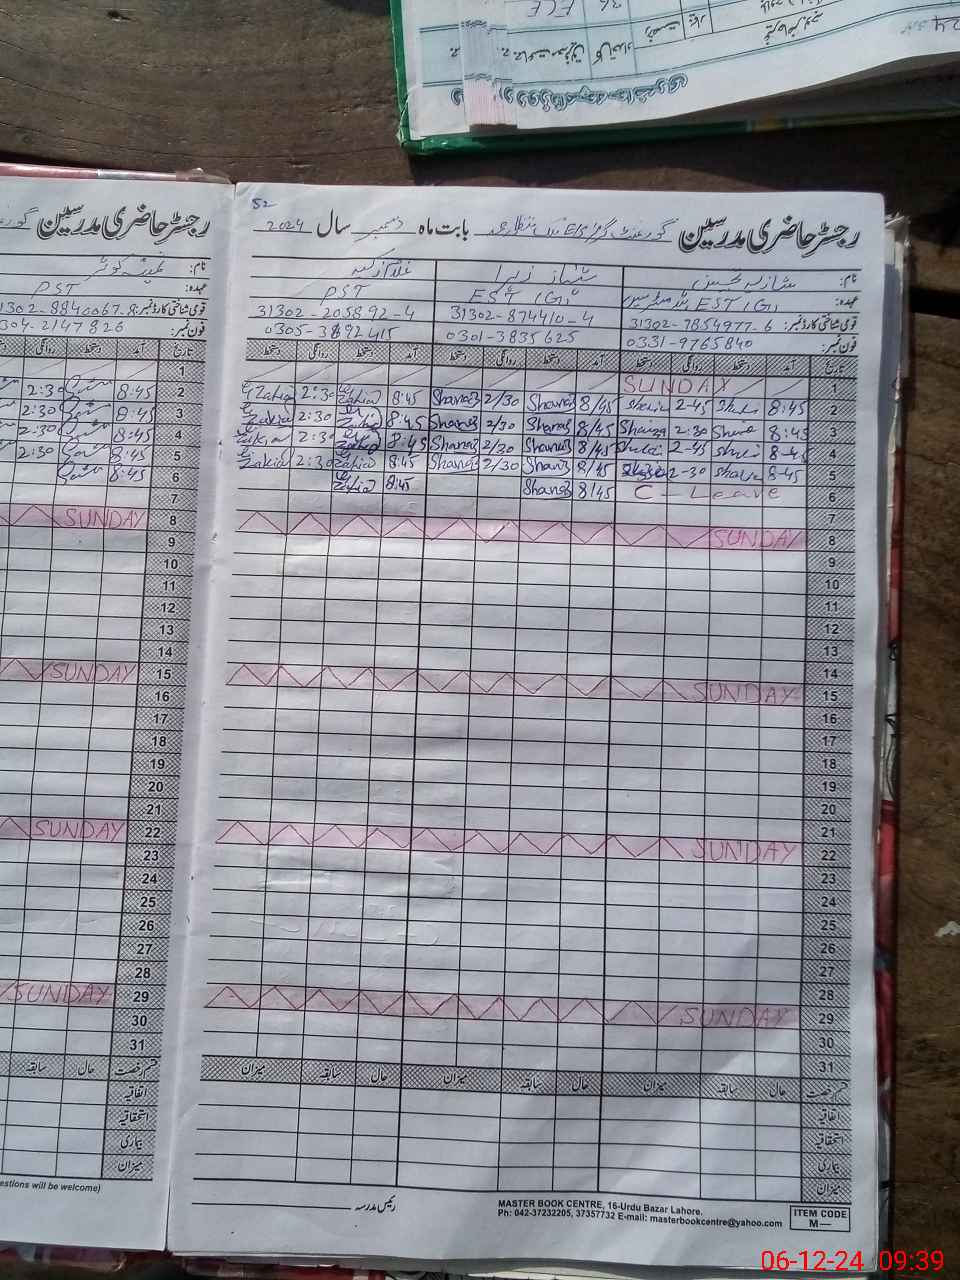 52
رجسٹر حاضری مدرسین گورنمنٹ گرلز E/S بابت ماہ دسمبر سال 2024
نام: شازیہ حسین شہناز زہرا غلام زکیہ
عہدہ: EST (G) EST (G) PST
قومی شناختی کارڈ نمبر: 31302-7854977-6 31302-874410-4 31302-205892-4
فون نمبر: 0331-9765840 0301-3835625 0305-3892415
تاریخ آمد دستخط روانگی دستخط آمد دستخط روانگی دستخط آمد دستخط روانگی دستخط
1 SUNDAY
2 8:45 2-45 8/45 Shanaz 2/30 Shanaz 8:45 Zakia 2:30 Zakia
3 8:45 2:30 8/45 Shanaz 2/30 Shanaz 8:45 Zakia 2:30 Zakia
4 8-45 2-45 8/45 Shanaz 2/30 Shanaz 8:45 Zakia 2:30 Zakia
5 8-45 2-30 8/45 Shanaz 2/30 Shanaz 8:45 Zakia 2:30 Zakia
6 C - Leave 8/45 Shanaz 8:45 Zakia
7
8 SUNDAY
9
10
11
12
13
14
15 SUNDAY
16
17
18
19
20
21
22 SUNDAY
23
24
25
26
27
28
29 SUNDAY
30
31
قسم رخصت حال سابقہ میزان حال سابقہ میزان حال سابقہ میزان
اتفاقیہ
استحقاقیہ
بیماری
میزان
رئیس مدرسہ
MASTER BOOK CENTRE, 16-Urdu Bazar Lahore.
Ph: 042-37232205, 37357732 E-mail: masterbookcentre@yahoo.com
ITEM CODE
M—
رجسٹر حاضری مدرسین
نام:
عہدہ: PST
قومی شناختی کارڈ نمبر: 31302-8840067-8
فون نمبر: 304-2147826
تاریخ آمد دستخط روانگی
1
2 8:45 2:30
3 8:45 2:30
4 8:45 2:30
5 8:45 2:30
6 8:45
7
8 SUNDAY
9
10
11
12
13
14
15 SUNDAY
16
17
18
19
20
21
22 SUNDAY
23
24
25
26
27
28
29 SUNDAY
30
31
قسم رخصت حال سابقہ
اتفاقیہ
استحقاقیہ
بیماری
میزان
estions will be welcome)
ECE
06-12-24 09:39